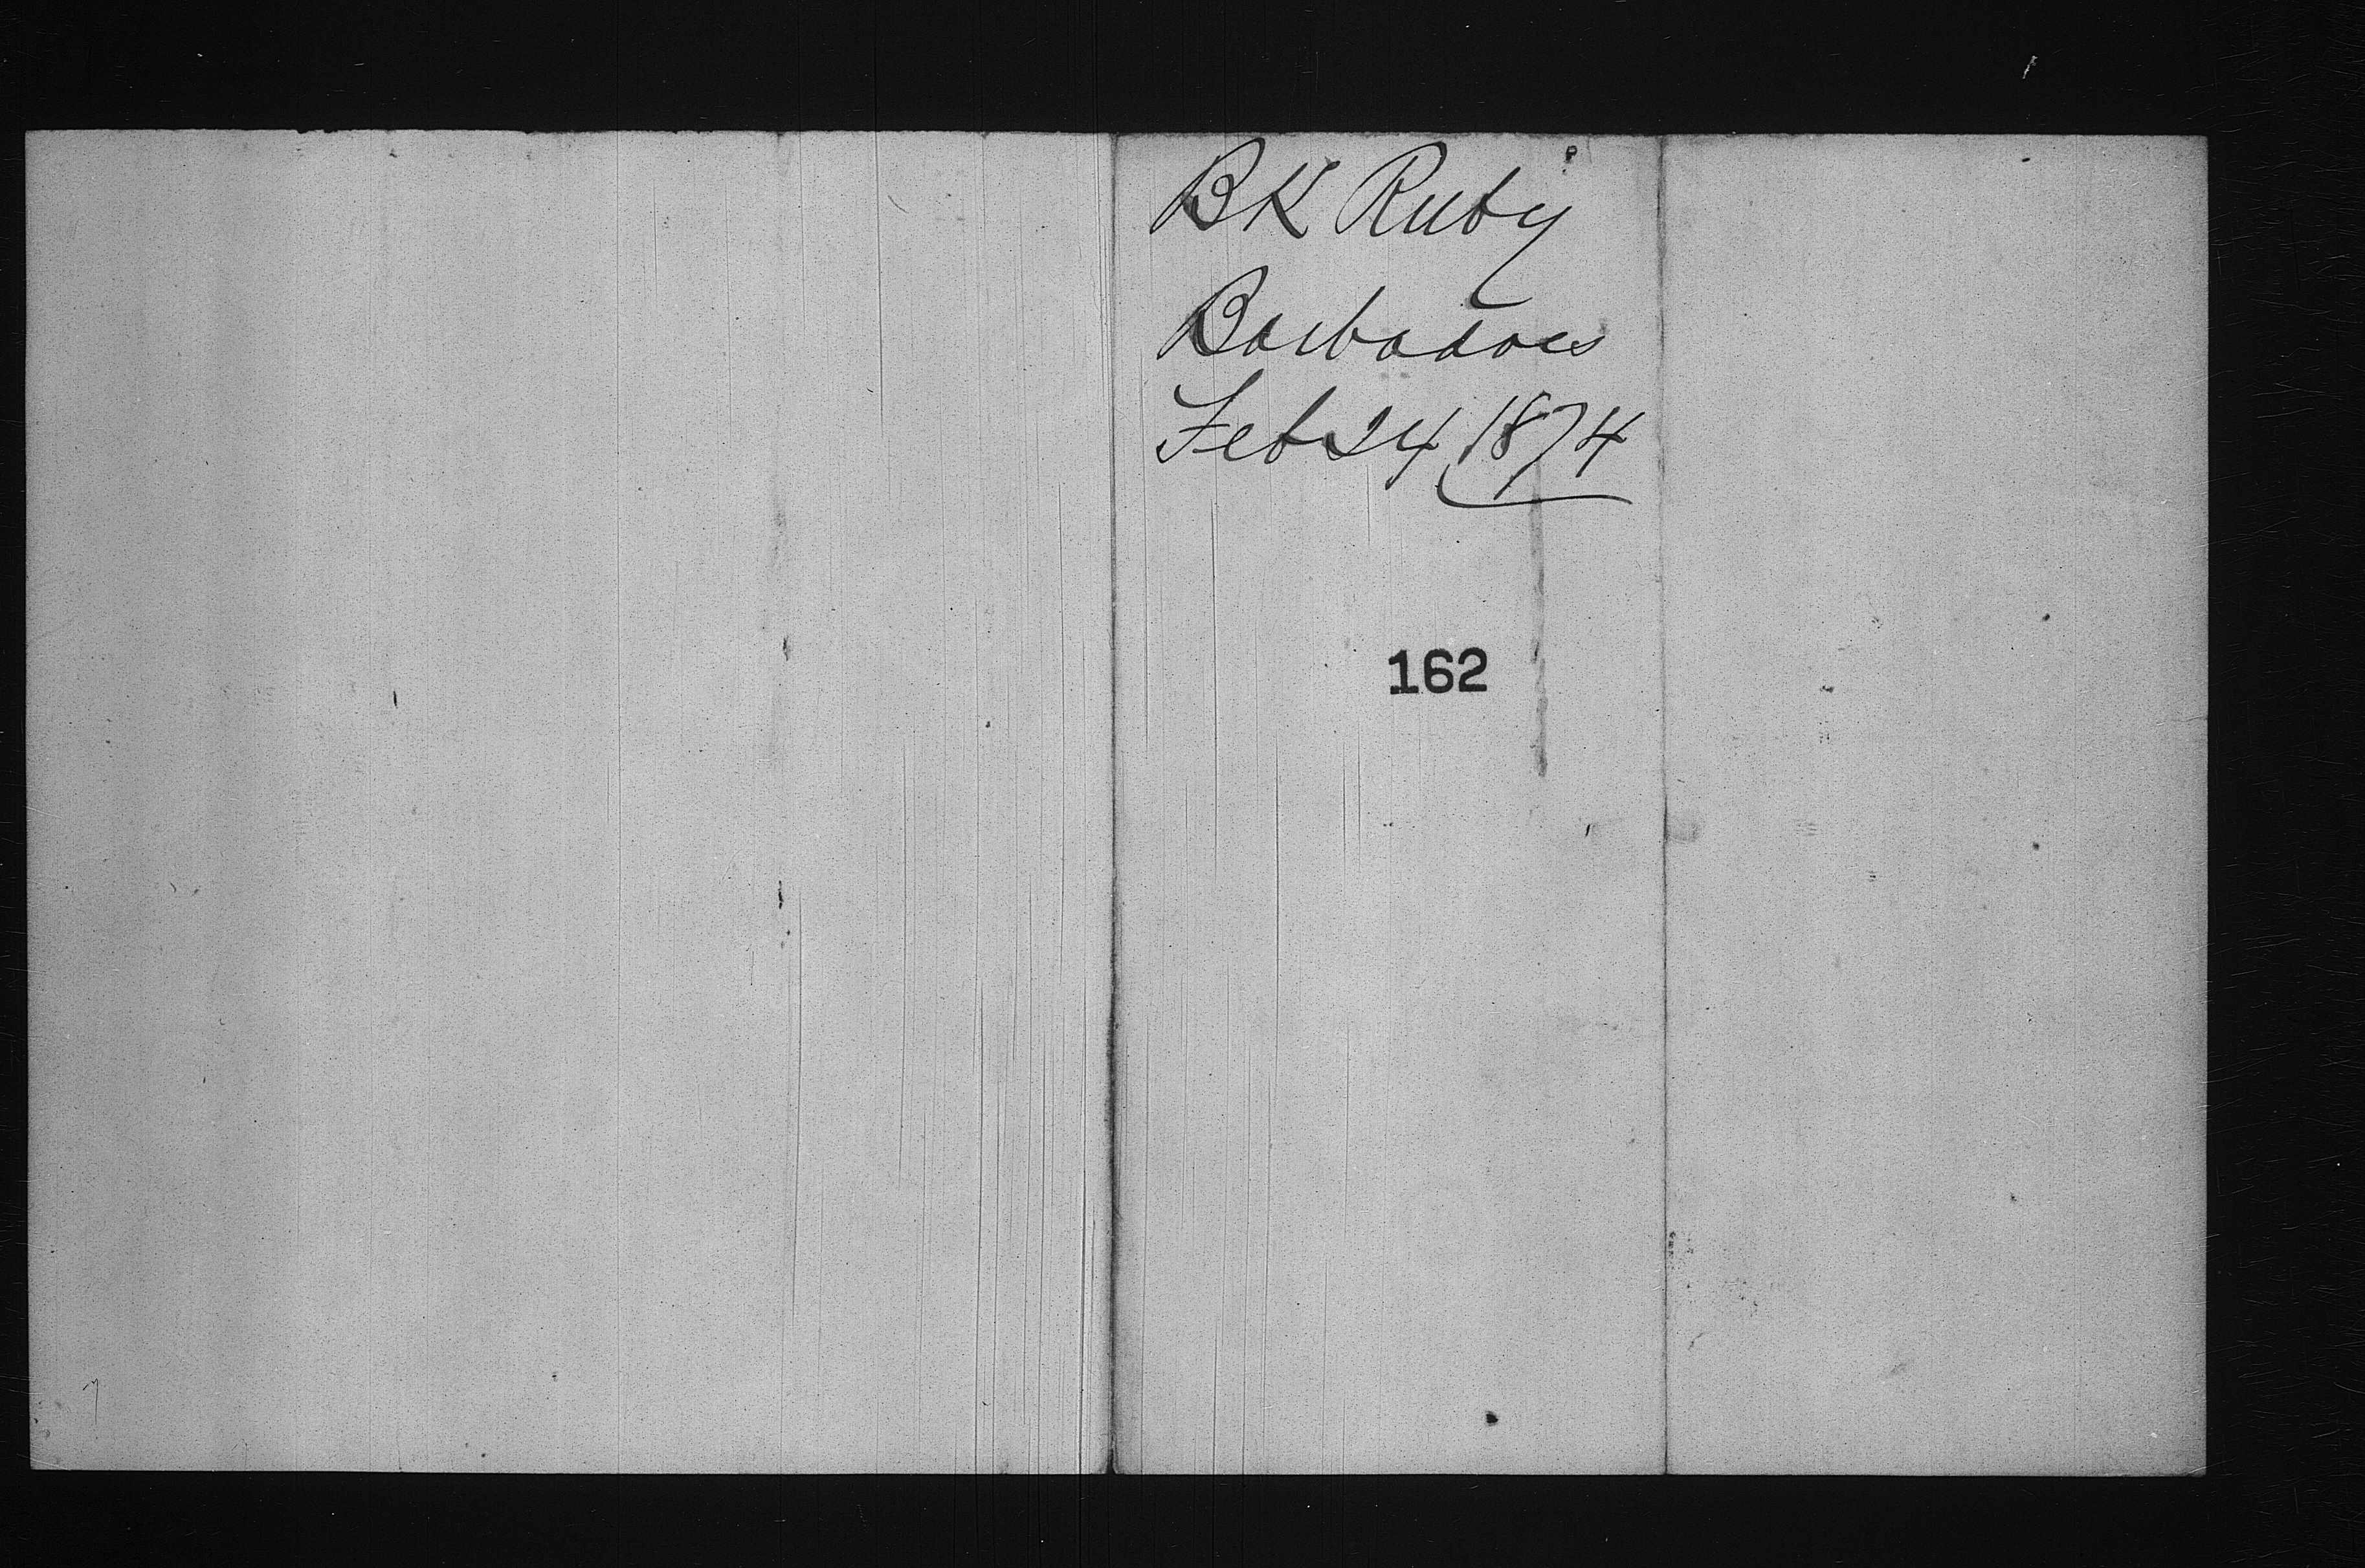 BK Ruby
Barbadoes
Feb 24 1874
162